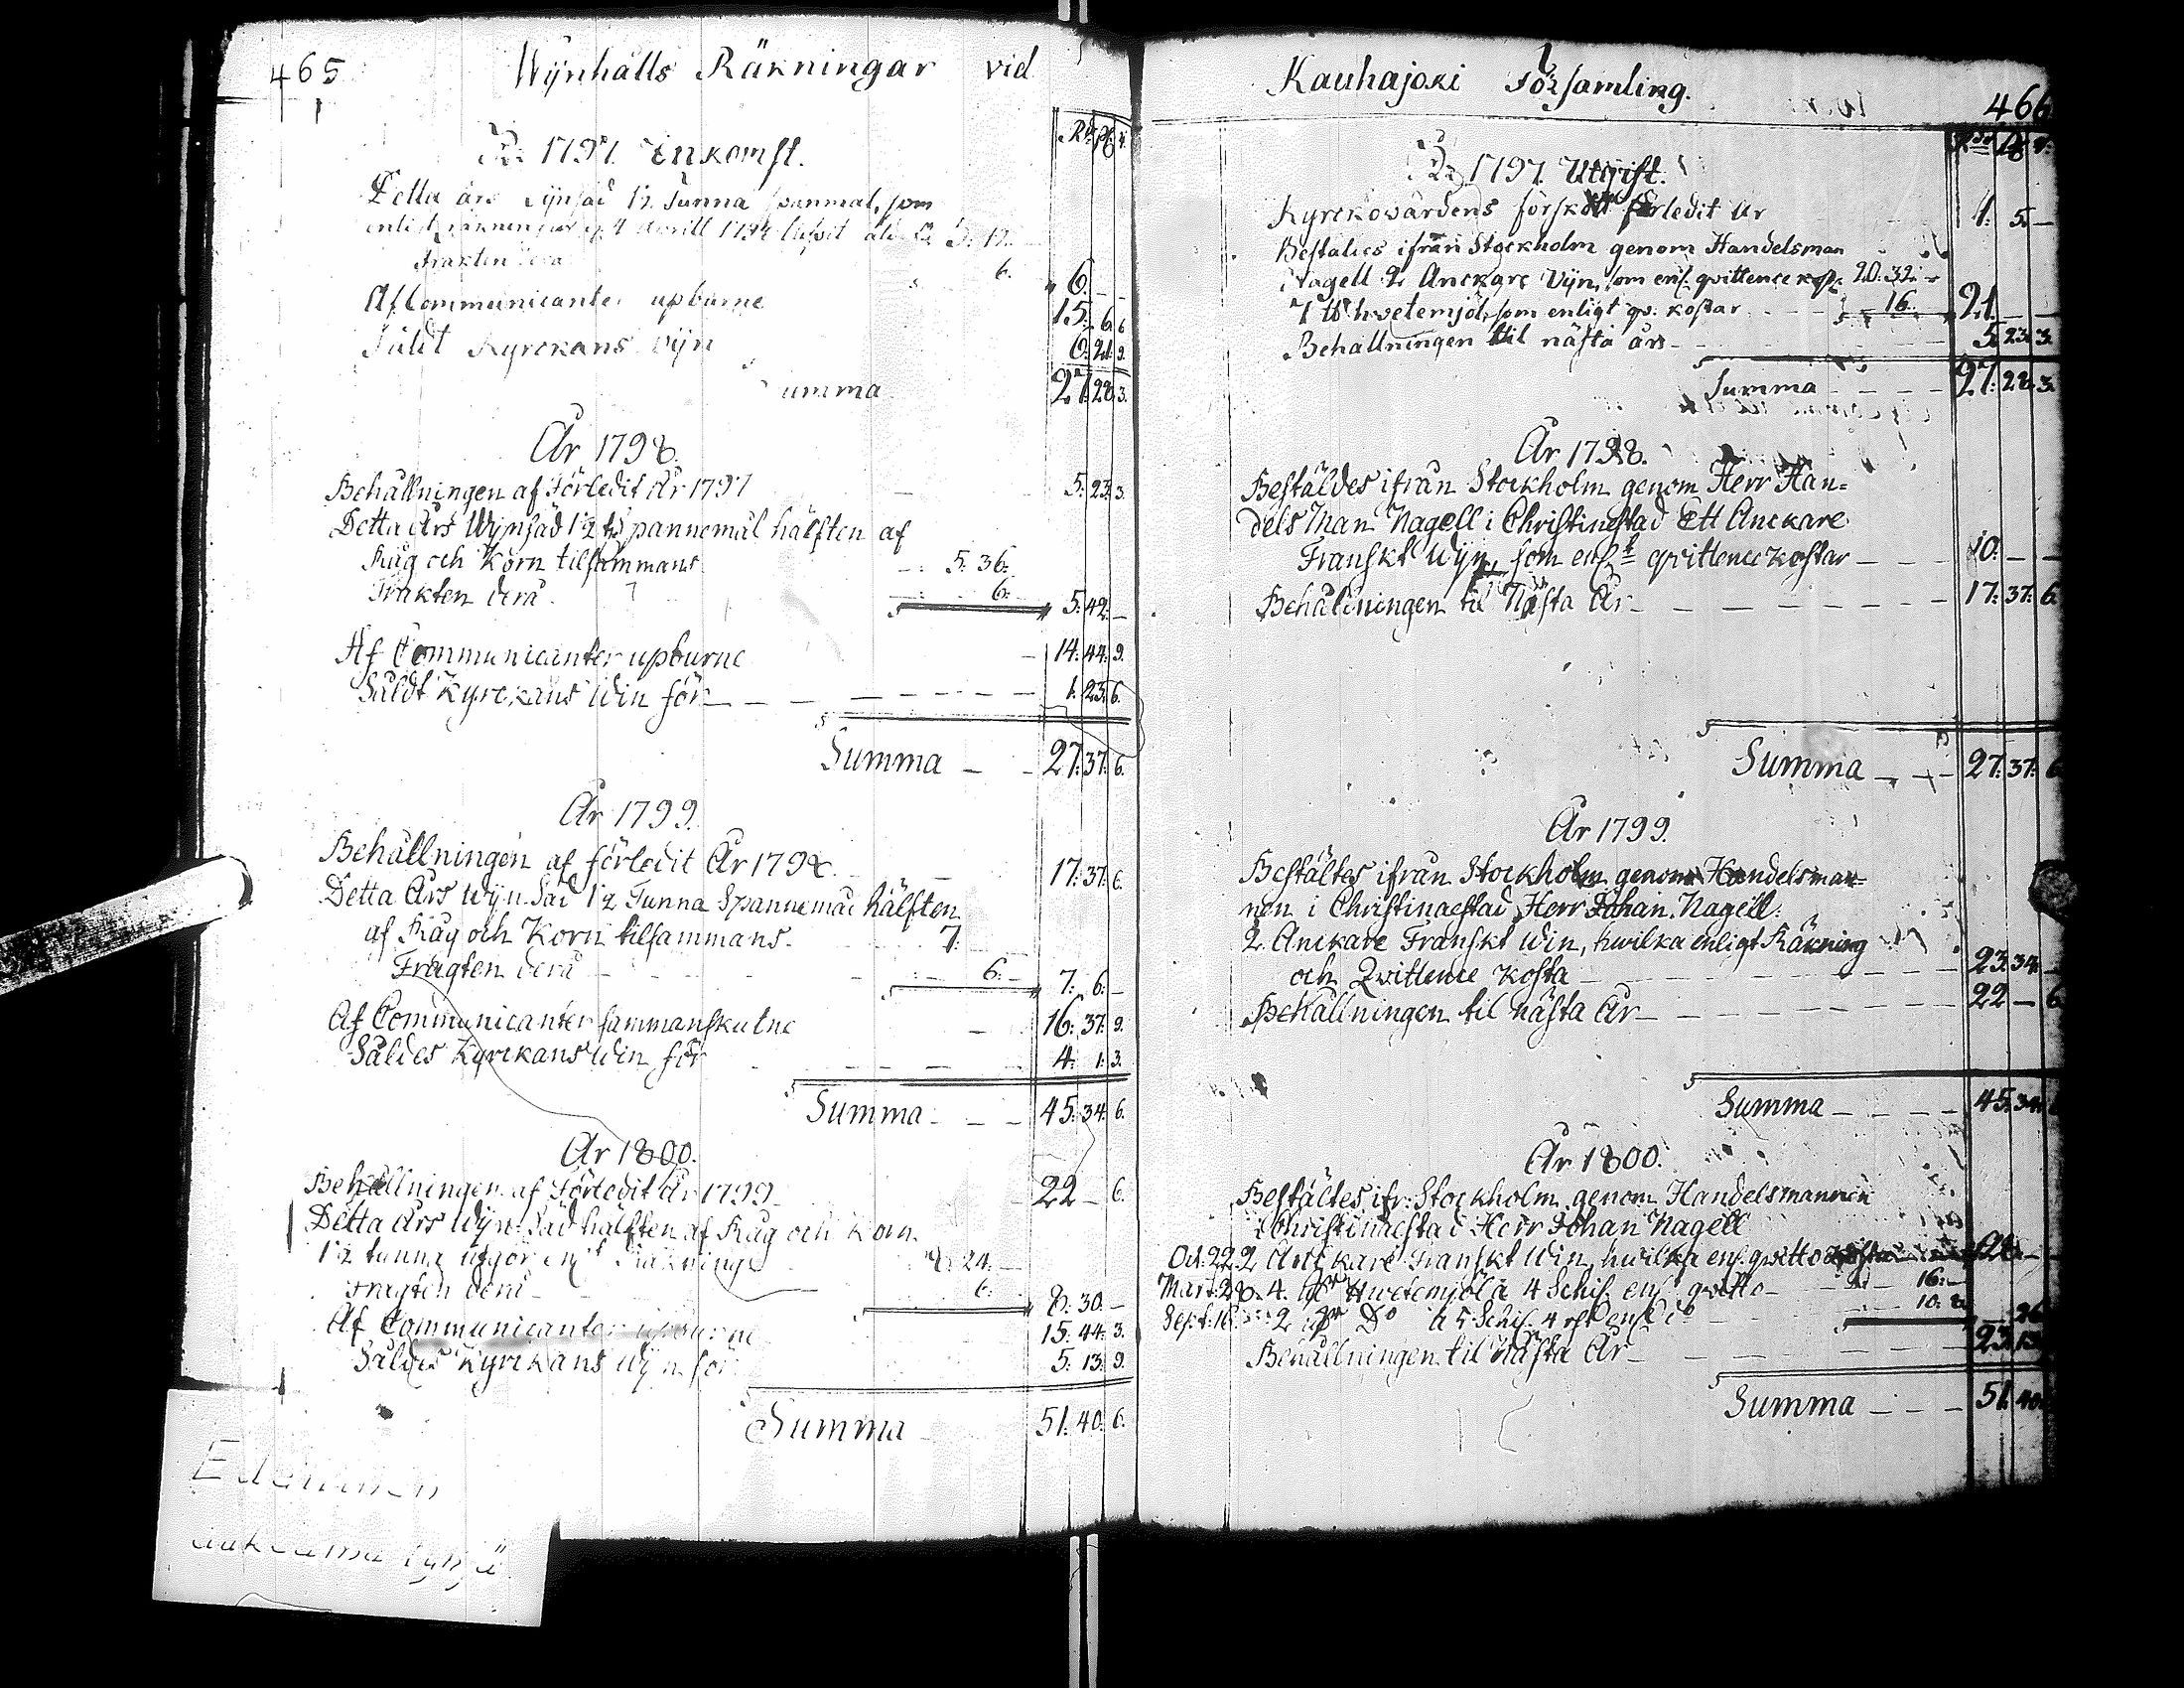 465 Wynhalls Räkningar vid
Rd: ß r:
År 1797. Inkomst.
Detta års Wynsäd 1½ Tunna spanmål, som
enligt
Frakten derå 6. 6. — —
Af Communicanter upburne 15. 6. 6.
Såldt Kyrckans Vijn 6. 21. 9.
Summa 27. 28. 3.
År 1798.
Behållningen af Förledit År 1797 5. 23. 3.
Detta Års Wynsäd 1½ t: spannemål hälften af
Råg och Korn tilsammans 5. 36.
Frakten derå 6: 5. 42. —
Af Communicanter upburne 14. 44. 9.
Såldt Kyrckans Win för 1. 23. 6.
Summa 27. 37. 6.
År 1799.
Behållningen af förledit År 1798. 17. 37. 6.
Detta Års Wyn-Säd 1½ Tunna Spannemål hälften
af Råg och Korn tilsammans. 7:
Fragten derå 6: 7. 6. —
Af Communicanter sammanskutne 16. 37. 9.
Såldes Kyrckans Win för 4. 1. 3.
Summa 45. 34. 6.
År 1800.
Behållningen af Förledit År 1799 22 — 6.
Detta Års Wyn-Säd hälften af Råg och Korn
1½ tunna utgör enl:t Räkning 8: 24.
Fragten derå 6. 8. 30. —
Af Communicanter upburne 15. 44. 3.
Såldes Kyrckans Wyn för 5. 13. 9.
Summa 51. 40. 6.
Kauhajoki Församling. 466
År 1797. Utgift.
Kyrckowärdens förskott förledit År 1. 5. —
Bestältes ifrån Stockholm genom Handelsman
Nagell 2 Anckare Vijn, som enl: qvittence kost: 20. 32.
7 lb hwetemjöl, som enligt qv. kostar 16. 21. — —
Behållningen til nästa års 5. 23. 3.
Summa 27. 28. 3.
År 1798.
Bestäldes ifrån Stockholm genom Herr Han=
dels Man Nagell i Christinestad Ett Anckare
Franskt Wyn, som enl:t qvittence kostar 10. — —
Behållningen til Nästa År 17. 37. 6.
Summa 27. 37. 6
År 1799.
Bestältes ifrån Stockholm genom Handelsman=
nen i Christinaestad Herr Johan Nagell:
2. Anckare Franskt Win, hwilka enligt Räkning
och Qvittence Kosta 23. 34. —
Behållningen til nästa År 22 — 6
Summa 45. 34.
År 1800.
Bestältes ifr: Stockholm genom Handelsmannen
i Christinaestad Herr Johan Nagell
Oct: 22 2 Anckare Franskt Win, hwilka enl: qvitto
Mart: 28. 4. Hwetemjöl à 4 Schil. enl:t qvitto 16.
Sept: 16 2 D:o à 5 Schil. 4 rst enl:t d:o 10. 8. 26
Behållningen til Nästa År 23. 13.
Summa 51. 40.